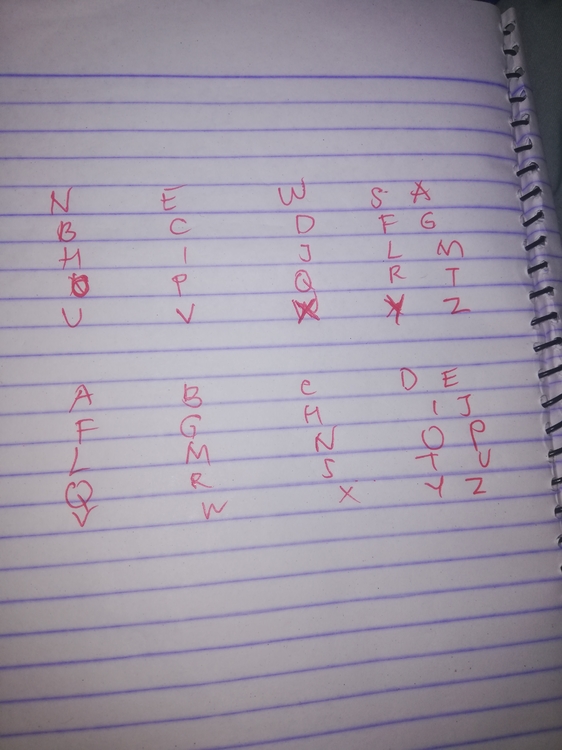 N E W S A
B C D F G
H I J L M
O P Q R T
U V X Y Z
A B C D E
F G H I J
L M N O P
Q R S T U
V W X Y Z